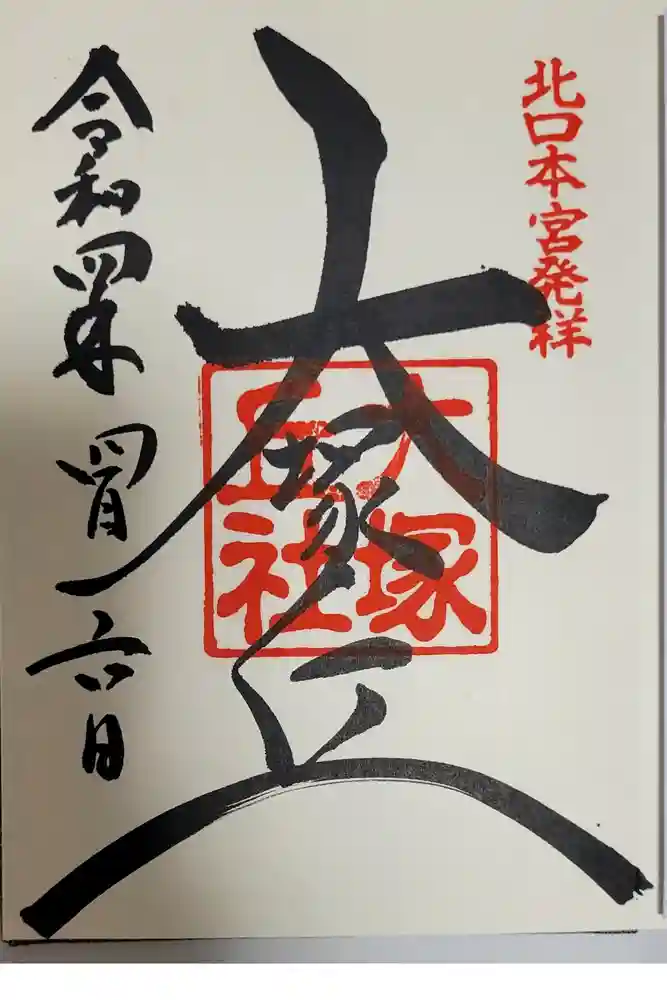 北口本宮発祥
大塚丘
大塚
丘社
令和四年四月六日